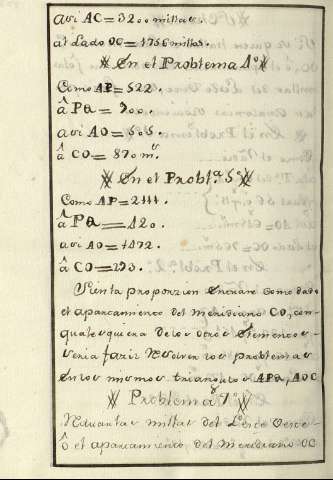 asi AC=3200 millas.
al Lado OC=1756 millas.
En el Problema 4º
Como AP=522.
â PQ=900.
asi AO=505.
â CO=870 mˢ
En el Problª 5º
Como AP=2111.
â PQ=420.
asi AO=1472.
â CO=293.
Si enta proporzion entrare como dado
el apartamiento del meridiano CO, con
qualesquiera de los otros
seria facil Resolver los problemas
en los mismos triangulos APQ, AOC
Problema 7º
Navegadas millas del Leste Oeste
ô el apartamiento del meridiano OC